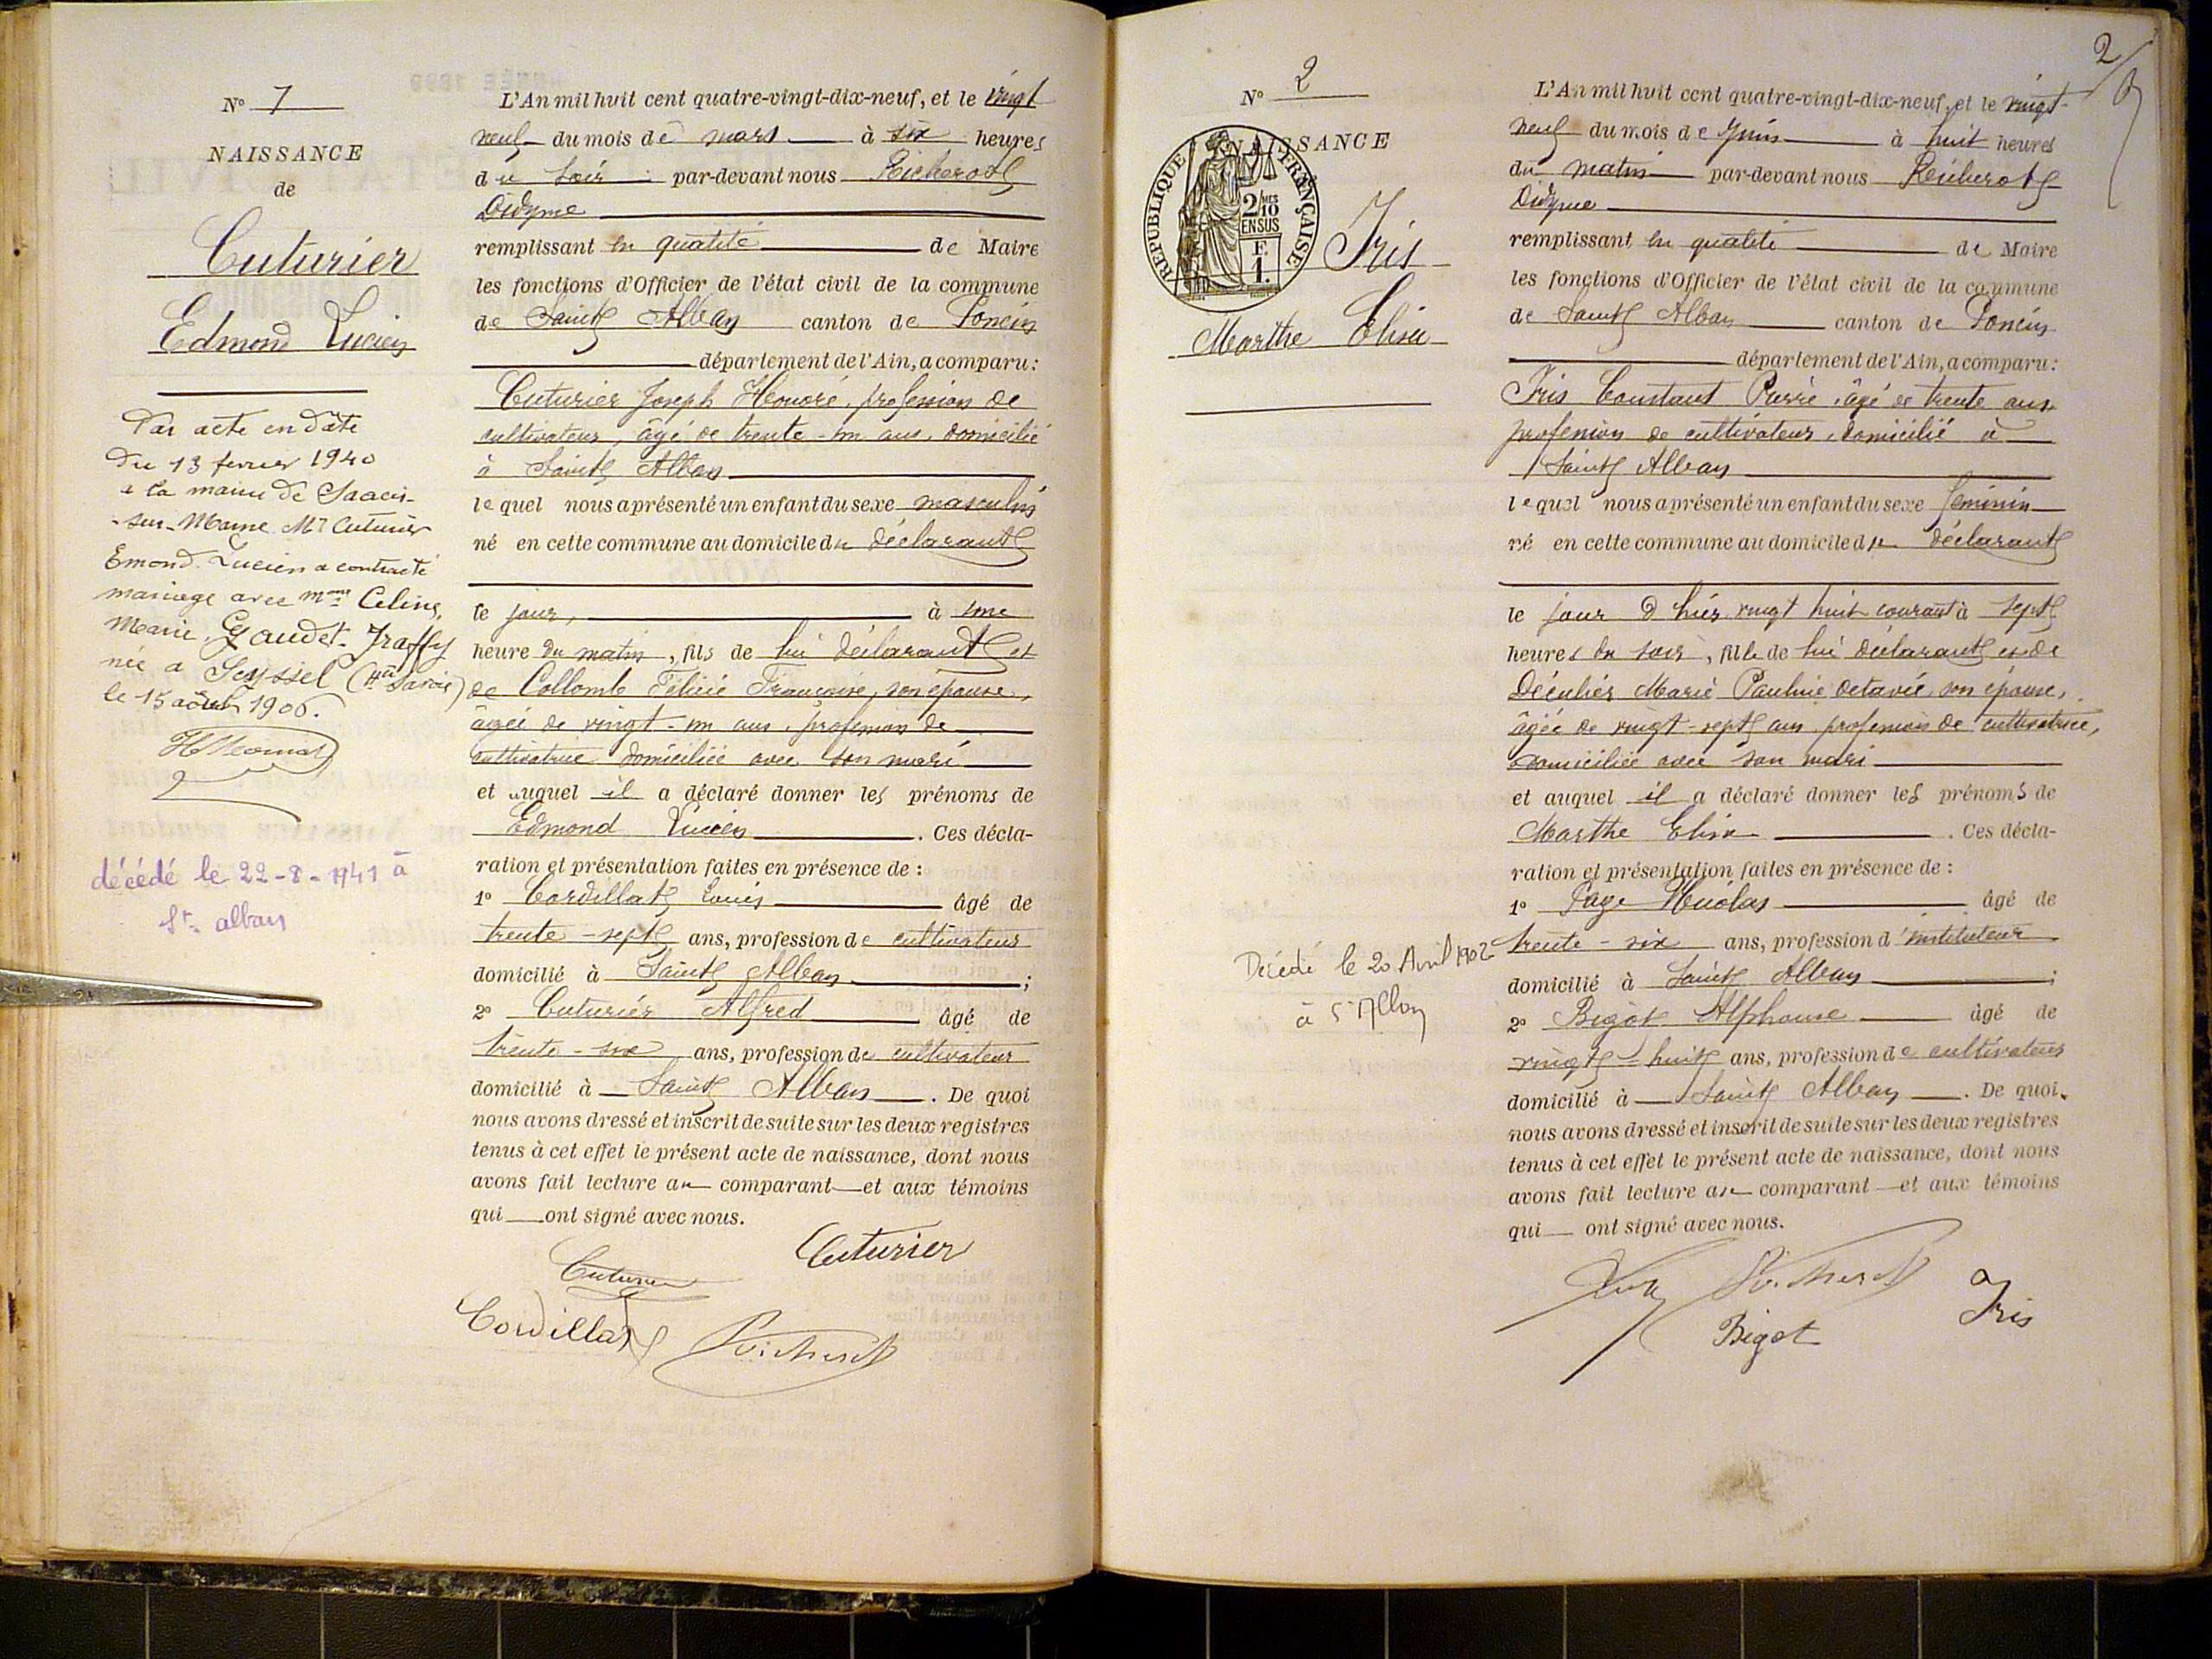 N° 1
NAISSANCE
de
Cuturier
Edmond Lucien
Par acte en date
du 13 fevrier 1940
a la mairie de
sur-Marne Mr Cuturier
Emond Lucien a contracté
mariage avec mme Celine,
Marie, Gaudet-Traffy
née a Seyssel (Hte Savoie)
le 15 août 1906.
décédé le 22-8-1941 à
St. alban
L'An mil huit cent quatre-vingt-dix-neuf, et le vingt
neuf du mois de mars à six heures
du soir par-devant nous Richerot
Didyme
remplissant en qualité de Maire
les fonctions d'Officier de l'état civil de la commune
de Saint Alban canton de Poncin
département de l'Ain, a comparu :
Cuturier Joseph Honoré, profession de
cultivateur, âgé de trente-un ans, domicilié
à Saint Alban
lequel nous a présenté un enfant du sexe masculin
né en cette commune au domicile du déclarant
le jour, à une
heure du matin, fils de lui déclarant et
de Collomb Félicie Françoise, son épouse,
âgée de vingt-un ans, profession de
cultivatrice domiciliée avec son mari
et auquel il a déclaré donner les prénoms de
Edmond Lucien. Ces décla-
ration et présentation faites en présence de :
1° Cordillat Louis âgé de
trente-sept ans, profession de cultivateur
domicilié à Saint Alban ;
2° Cuturier Alfred âgé de
trente-six ans, profession de cultivateur
domicilié à Saint Alban. De quoi
nous avons dressé et inscrit de suite sur les deux registres
tenus à cet effet le présent acte de naissance, dont nous
avons fait lecture au comparant et aux témoins
qui ont signé avec nous.
Cuturier
Cuturier
Cordillat Richerot
2
N° 2
NAISSANCE
REPUBLIQUE FRANÇAISE
2/10 MES
EN SUS
E.
1.
Iris
Marthe Elisa
Décédé le 20 Avril 1902
à St Alban
L'An mil huit cent quatre-vingt-dix-neuf, et le vingt-
neuf du mois de Juin à huit heures
du matin par-devant nous Richerot
Didyme
remplissant en qualité de Maire
les fonctions d'Officier de l'état civil de la commune
de Saint Alban canton de Poncin
département de l'Ain, a comparu :
Iris Constant Pierre, âgé de trente ans
profession de cultivateur, domicilié à
Saint Alban
lequel nous a présenté un enfant du sexe feminin
né en cette commune au domicile du déclarant
le jour d'hier vingt huit courant à sept
heures du soir, fille de lui déclarant et de
Marie Pauline Octavie, son épouse,
âgée de vingt-sept ans, profession de cultivatrice,
domiciliée avec son mari
et auquel il a déclaré donner les prénoms de
Marthe Elisa. Ces décla-
ration et présentation faites en présence de :
1° Page Nicolas âgé de
trente-six ans, profession d'instituteur
domicilié à Saint Alban ;
2° Bigot Alphonse âgé de
vingt-huit ans, profession de cultivateur
domicilié à Saint Alban. De quoi
nous avons dressé et inscrit de suite sur les deux registres
tenus à cet effet le présent acte de naissance, dont nous
avons fait lecture au comparant et aux témoins
qui ont signé avec nous.
Richerot Iris
Bigot